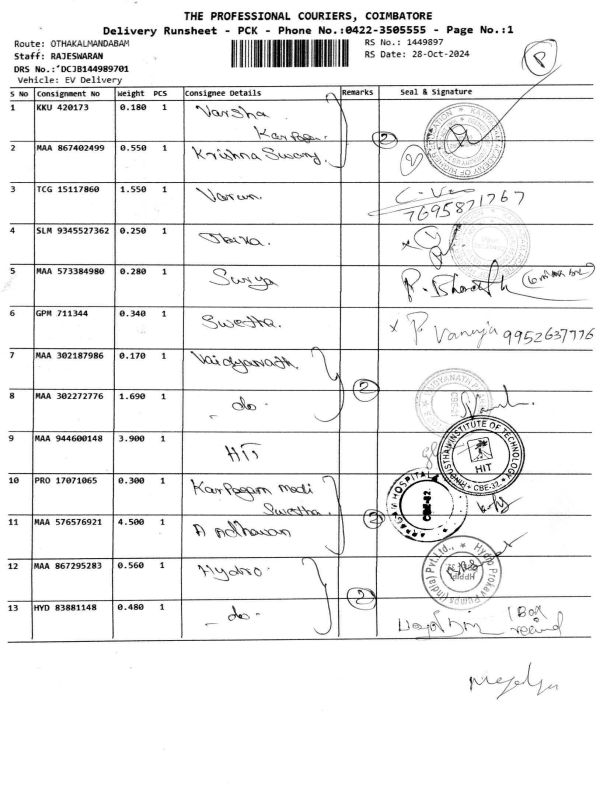 THE PROFESSIONAL COURIERS, COIMBATORE
Delivery Runsheet - PCK - Phone No.:0422-3505555 - Page No.:1
Route: OTHAKALMANDABAM
RS No.: 1449897
Staff: RAJESWARAN
RS Date: 28-Oct-2024
DRS No.:*DCJB144989701
Vehicle: EV Delivery
P
S No Consignment No Weight PCS Consignee Details Remarks Seal & Signature
1 KKU 420173 0.180 1 Varsha
Karpagam
2
2 MAA 867402499 0.550 1 Krishna Swamy
3 TCG 15117860 1.550 1 Varun
7695871767
4 SLM 9345527362 0.250 1
5 MAA 573384980 0.280 1 Surya P. Bharath
6 GPM 711344 0.340 1 Swetha. x P. Vanaja 9952637776
7 MAA 302187986 0.170 1 Vaidyanath
2
8 MAA 302272776 1.690 1 - do -
9 MAA 944600148 3.900 1 HIT
HINDUSTHAN INSTITUTE OF TECHNOLOGY
HIT
CBE-32
10 PRO 17071065 0.300 1 Karpagam medi
Swetha.
HOSPITAL
CBE-32
2
11 MAA 576576921 4.500 1
12 MAA 867295283 0.560 1 Hydro
Hydro Prokav Pumps (India) Pvt.Ltd.,
2
13 HYD 83881148 0.480 1 - do -
1 Box